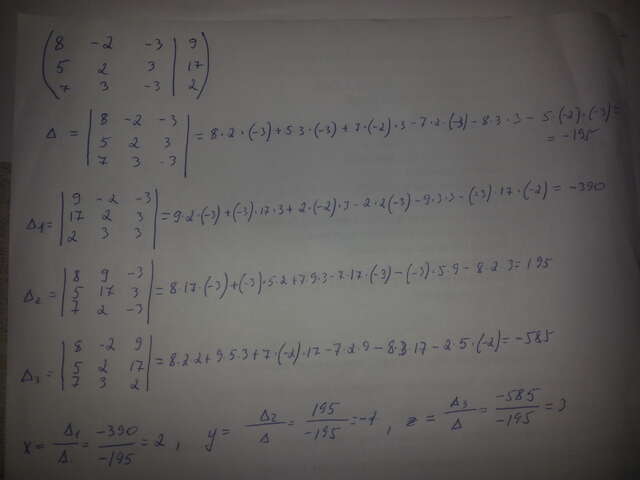 8 -2 -3 | 9
5 2 3 | 17
7 3 -3 | 2
Δ = | 8 -2 -3 | = 8·2·(-3)+5·3·(-3)+7·(-2)·3-7·2·(-3)-8·3·3-5·(-2)·(-3)=
5 2 3
7 3 -3
= -195
Δ1= | 9 -2 -3 |
17 2 3 | =9·2·(-3)+(-3)·17·3+2·(-2)·3-2·2(-3)-9·3·3-(-3)·17·(-2)= -390
2 3 3
Δ2= | 8 9 -3 |
5 17 3 | =8·17·(-3)+(-3)·5·2+7·9·3-7·17·(-3)-(-3)·5·9-8·2·3=195
7 2 -3
Δ3= | 8 -2 9 |
5 2 17 | =8·2·2+9·5·3+7·(-2)·17-7·2·9-8·3·17-2·5·(-2)= -585
7 3 2
x = Δ1/Δ = -390/-195 = 2, y = Δ2/Δ = 195/-195 = -1, z = Δ3/Δ = -585/-195 = 3